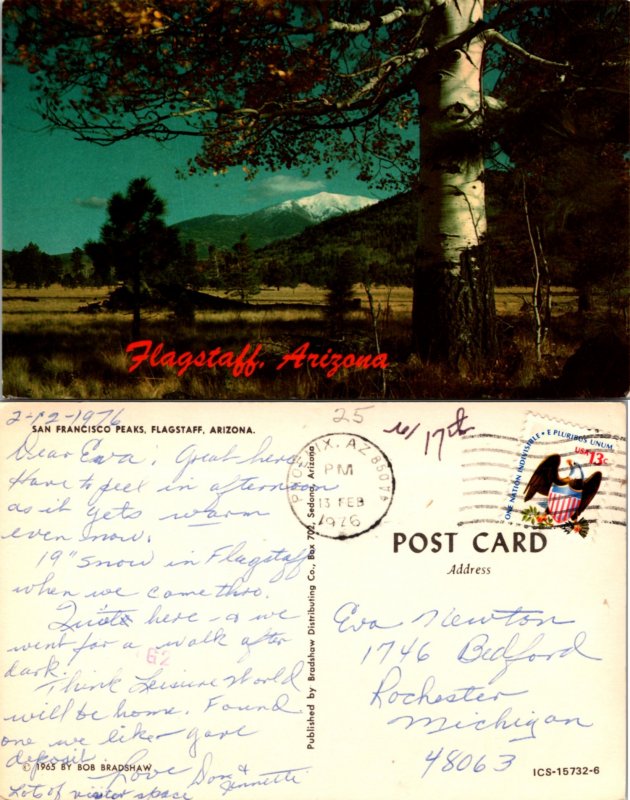 Flagstaff, Arizona
2-12-1976
SAN FRANCISCO PEAKS, FLAGSTAFF, ARIZONA.
Dear Eva; Great here
Have to feel in afternoon
as it gets warm
even now.
19" snow in Flagstaff
when we came thro.
Quiet here - as we
went for a walk after
dark.
Think Leisure World
will be home. Found
one we like - gave
deposit.
Love Don &
Jennette
Lots of visitor space
© 1965 BY BOB BRADSHAW
62
Published by Bradshaw Distributing Co., Box 702, Sedona, Arizona
25
w/17th
PHOENIX, AZ 850
PM
13 FEB
1976
ONE NATION INDIVISIBLE • E PLURIBUS UNUM
USA 13c
POST CARD
Address
Eva Newton
1746 Bedford
Rochester
Michigan
48063
ICS-15732-6